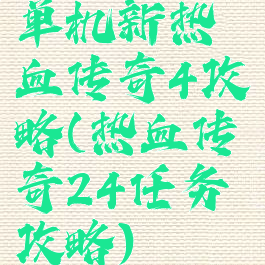 单机新热
血传奇4攻
略(热血传
奇24任务
攻略)